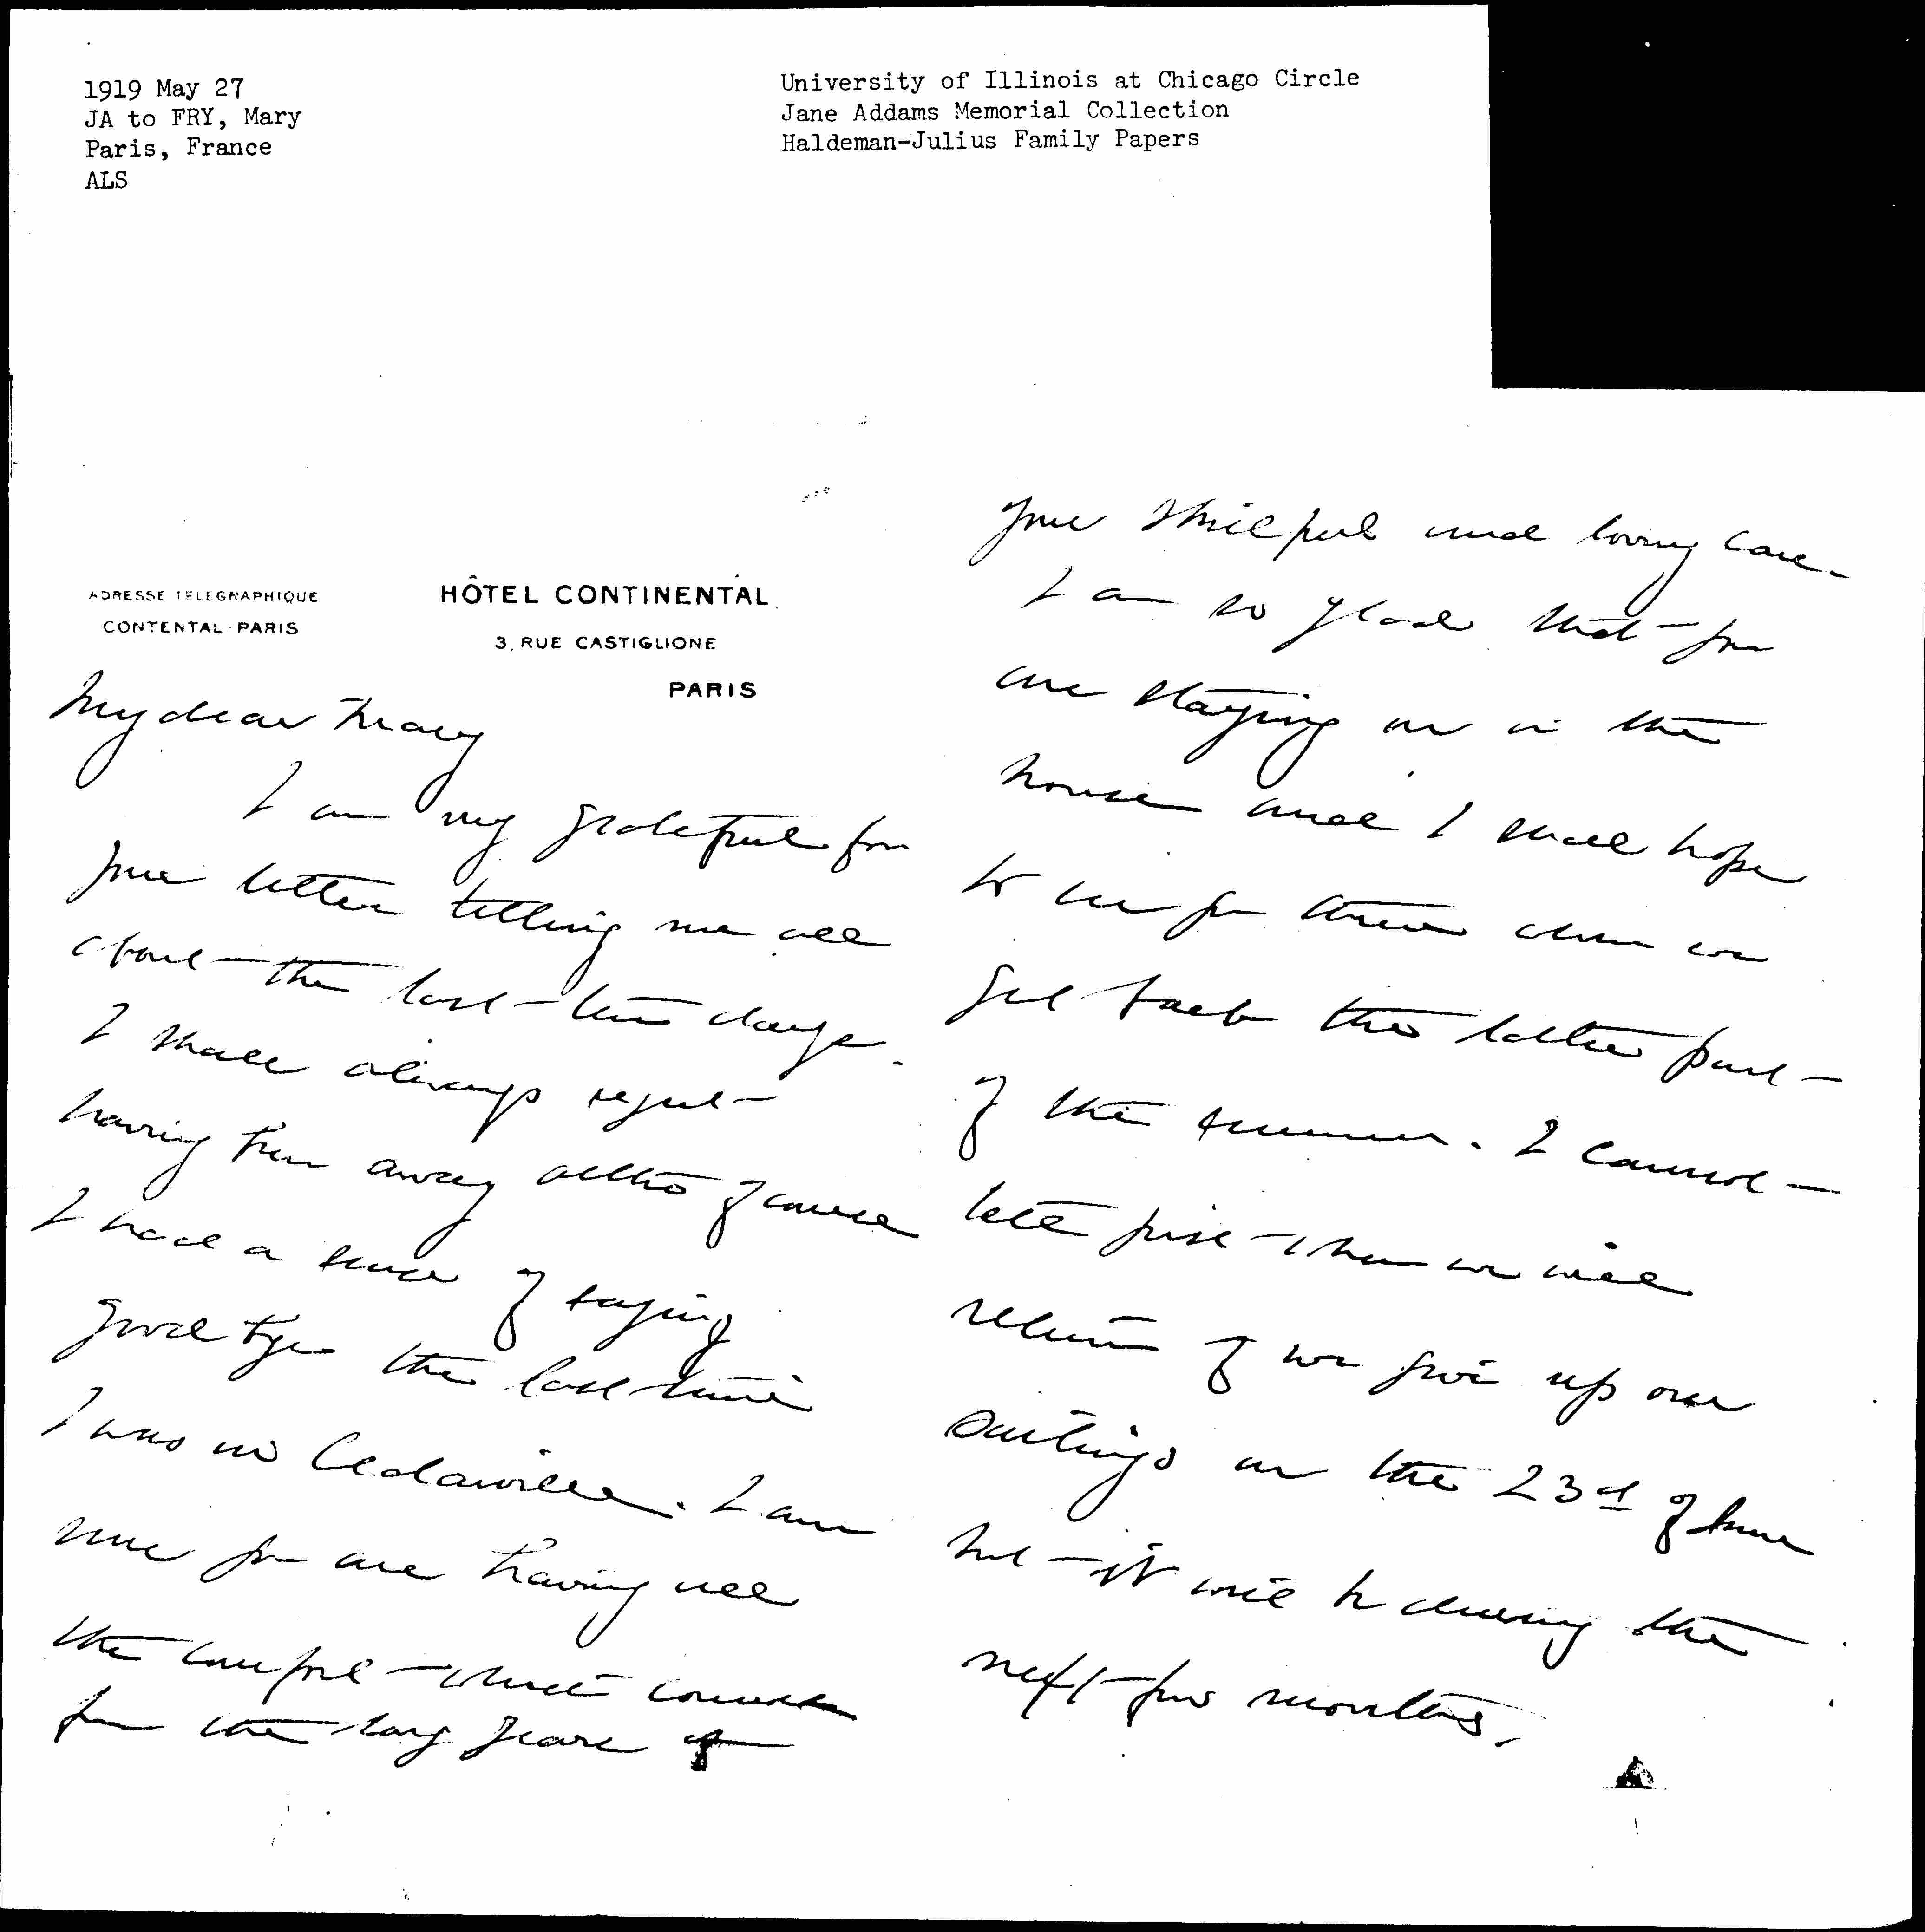 1919 May 27
JA to FRY, Mary
Paris, France
ALS
University of Illinois at Chicago Circle
Jane Addams Memorial Collection
Haldeman-Julius Family Papers
ADRESSE TELEGRAPHIQUE
CONTENTAL-PARIS
HÔTEL CONTINENTAL
3, RUE CASTIGLIONE
PARIS
My dear Mary
I am very grateful for
your letter telling me all
about the last few days.
I shall always regret
having been away altho of course
I had a sense of saying
good bye the last time
I was in Cedarville. I am
sure you are having all
the comfort which comes
from the long years of
your skilful and loving care.
I am so glad that you
are staying on in the
house and I shall hope
to see you there when we
get back the latter part
of the summer. I cannot
tell just when we will
return if we give up our
sailings on the 23d of June
but it will be during the
next few months.